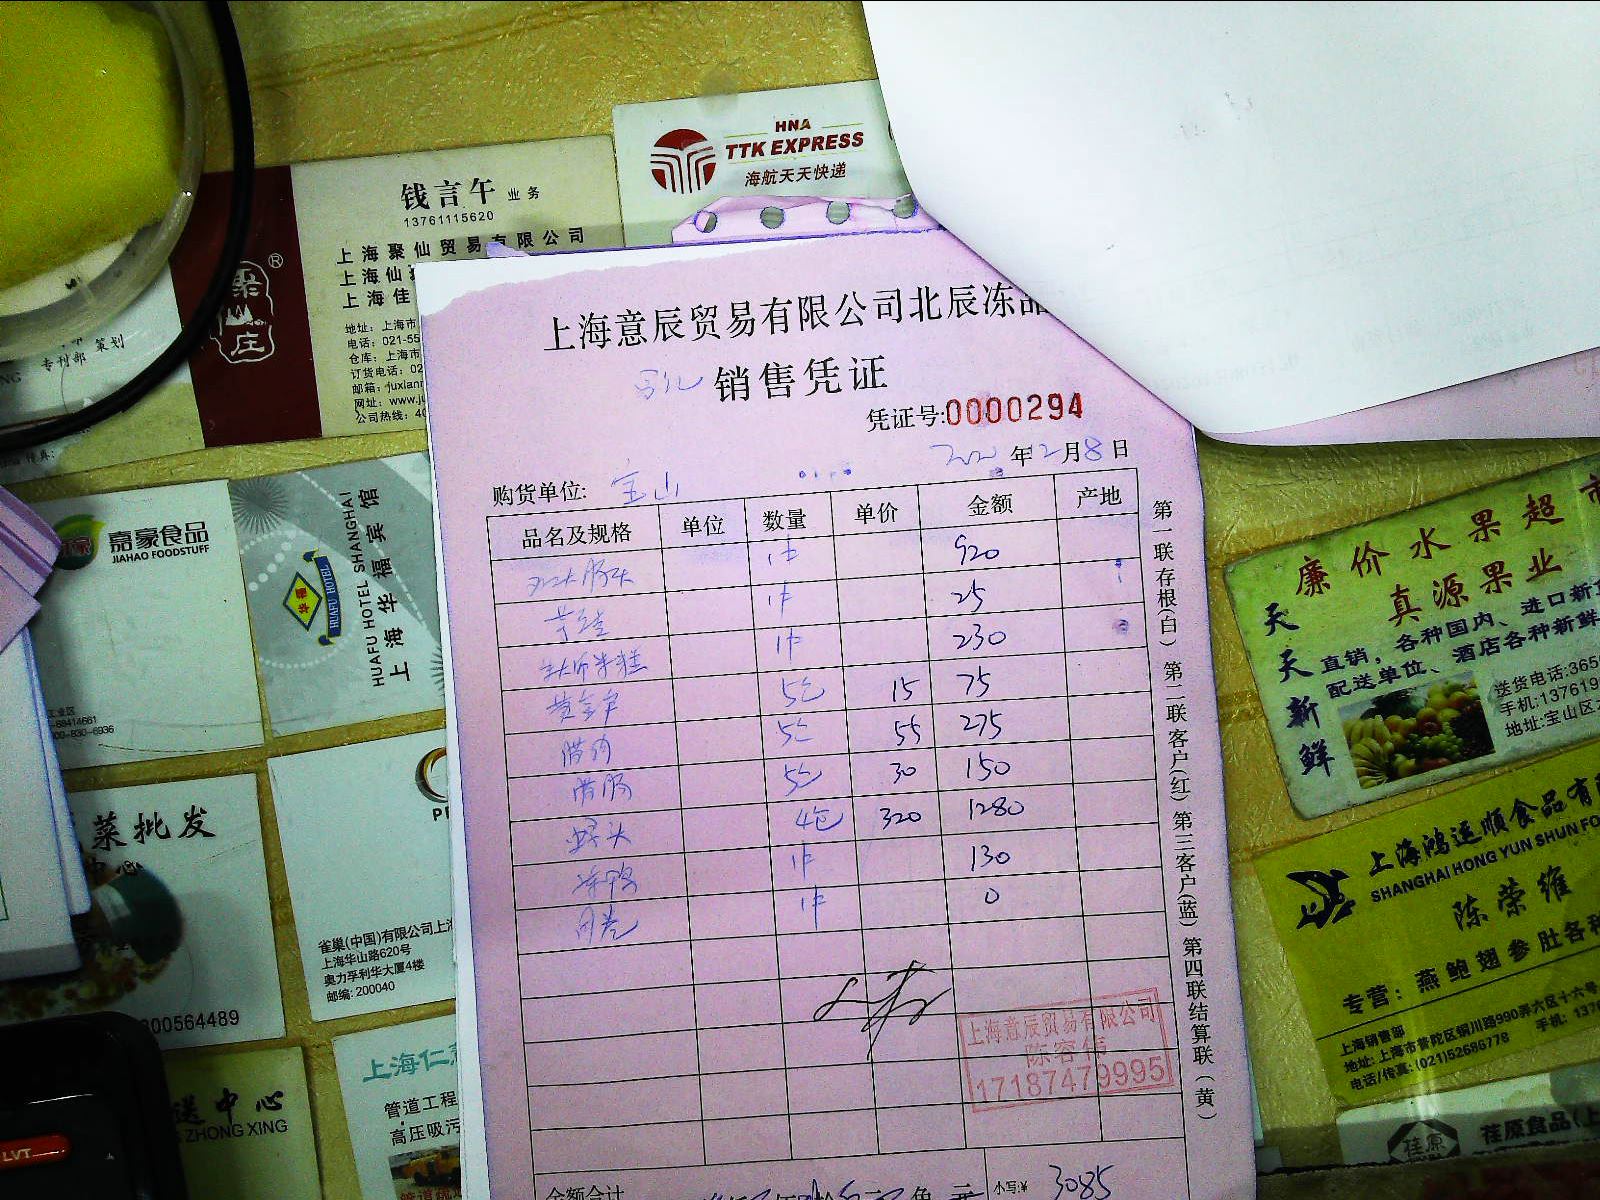 HNA
TTK EXPRESS
海航天天快递
钱言午 业务
13761115620
上海聚仙贸易有限公司
上海仙
上海佳
地址: 上海市
电话: 021-55
仓库: 上海市
订货电话: 02
邮箱: juxian
网址: www.ju
公司热线: 40
聚仙庄®
策划
专刊部
上海意辰贸易有限公司北辰冻品
销售凭证
凭证号:0000294
年2月8日
购货单位: 宝山
品名及规格 单位 数量 单价 金额 产地
1件 920
1件 25
1件 230
黄金 5包 15 75
腊肉 5包 55 275
腊肠 5包 30 150
4包 320 1280
冻鸭 1件 130
1件 0
上海意辰贸易有限公司
陈容伟
17187479995
金额合计
小写:¥ 3085
第一联存根(白) 第二联客户(红) 第三客户(蓝) 第四联结算联(黄)
嘉豪食品
JIAHAO FOODSTUFF
工业区
68414661
800-830-6936
华福
HUAFU HOTEL
HUAFU HOTEL SHANGHAI
上海华福宾馆
菜批发
中心
00564489
雀巢(中国)有限公司上海
上海华山路620号
奥力孚利华大厦4楼
邮编: 200040
送中心
ZHONG XING
上海仁
管道工程
高压吸污
管道疏
LVT
廉价水果超市
真源果业
天天新鲜
直销，各种国内、进口新
配送单位、酒店各种新鲜
送货电话:365
手机:137619
地址:宝山区
上海鸿运顺食品有
SHANGHAI HONG YUN SHUN FO
陈荣维
专营: 燕鲍翅参肚各种
上海销售部
地址: 上海市普陀区铜川路990弄六区十六号
电话/传真: (021)52686778
手机: 137
荏原
荏原食品(上